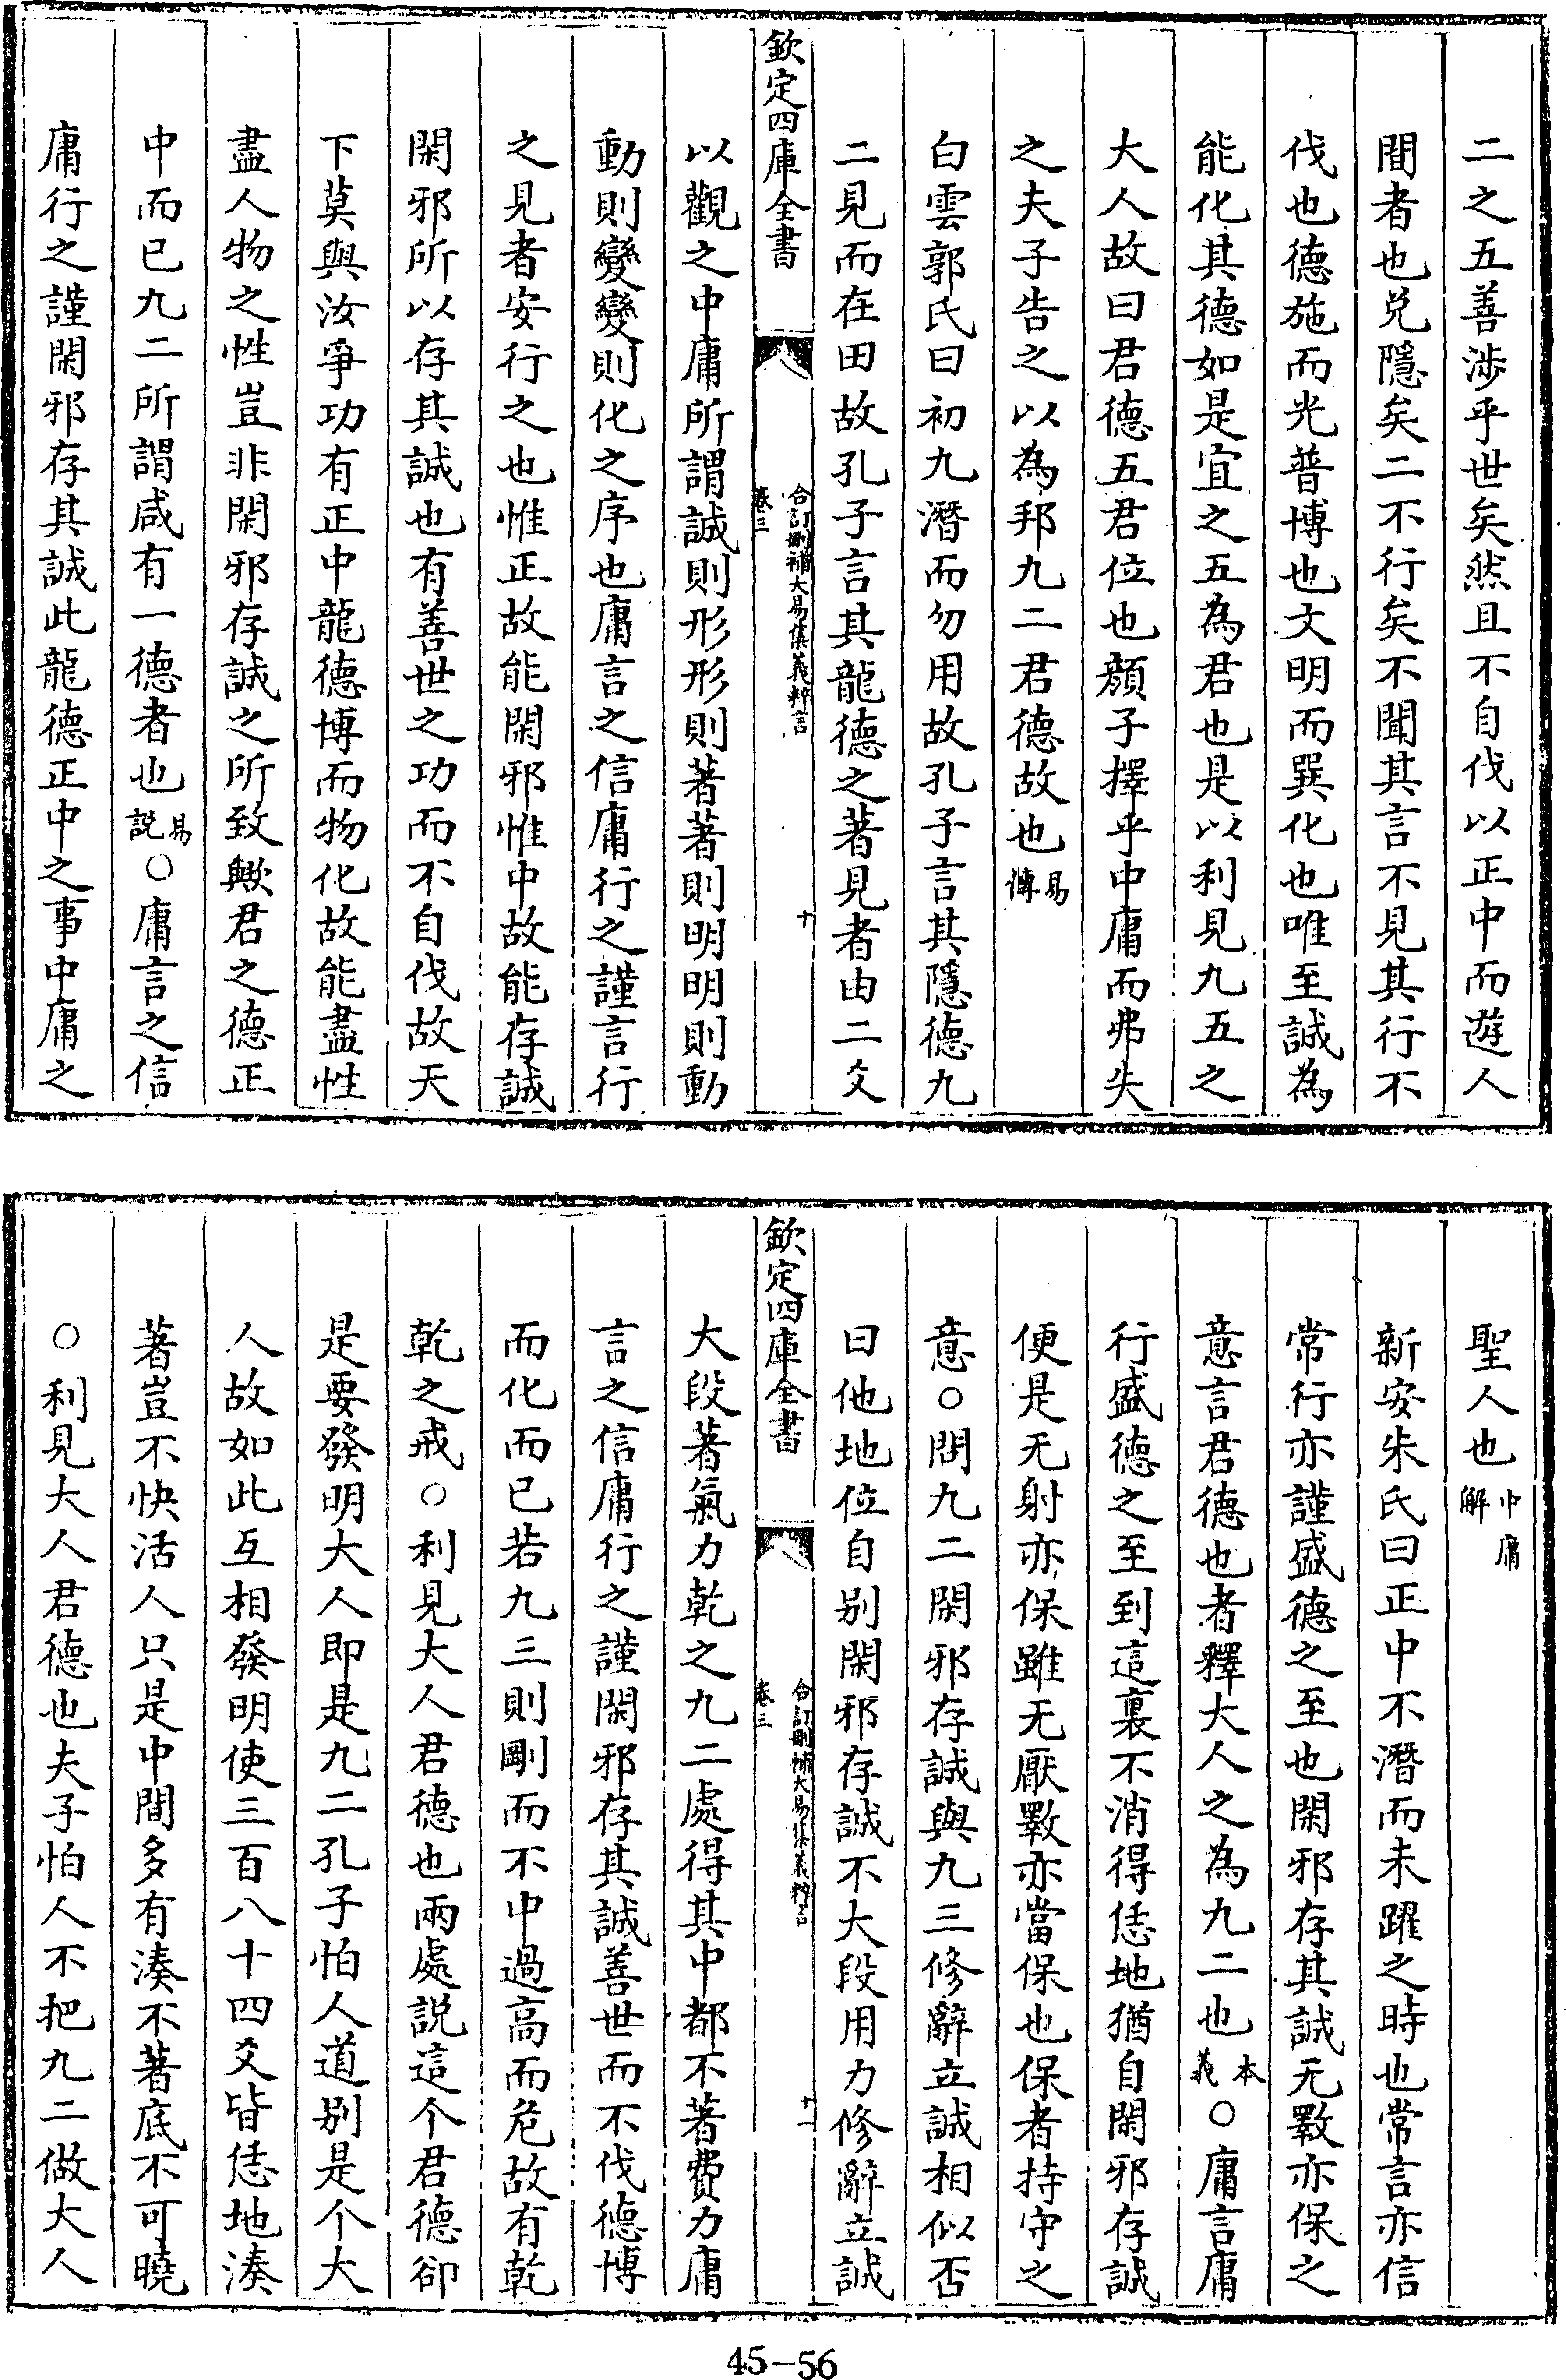 二之五善渉乎世矣然且不自伐以正中而遊人
間者也兑隱矣二不行矣不聞其言不見其行不
伐也德施而光普博也文明而巽化也唯至誠為
能化其德如是宜之五為君也是以利見九五之
大人故曰君德五君位也顔子擇乎中庸而弗失
之夫子告之以為邦九二君德故也易傳
白雲郭氏曰初九潛而勿用故孔子言其隱德九
二見而在田故孔子言其龍德之著見者由二爻
欽定四庫全書
合訂刪補大易集義粹言
卷三
十
以觀之中庸所謂誠則形形則著著則明明則動
動則變變則化之序也庸言之信庸行之謹言行
之見者安行之也惟正故能閑邪惟中故能存誠
閑邪所以存其誠也有善世之功而不自伐故天
下莫與汝爭功有正中龍德博而物化故能盡性
盡人物之性豈非閑邪存誠之所致歟君之德正
中而已九二所謂咸有一德者也易説○庸言之信
庸行之謹閑邪存其誠此龍德正中之事中庸之
聖人也中庸解
新安朱氏曰正中不潛而未躍之時也常言亦信
常行亦謹盛德之至也閑邪存其誠无斁亦保之
意言君德也者釋大人之為九二也本義○庸言庸
行盛德之至到這裏不消得恁地猶自閑邪存誠
便是无射亦保雖无厭斁亦當保也保者持守之
意○問九二閑邪存誠與九三修辭立誠相似否
曰他地位自别閑邪存誠不大段用力修辭立誠
欽定四庫全書
合訂刪補大易集義粹言
卷三
十一
大段著氣力乾之九二處得其中都不著費力庸
言之信庸行之謹閑邪存其誠善世而不伐德博
而化而已若九三則剛而不中過高而危故有乾
乾之戒○利見大人君德也兩處説這个君德卻
是要發明大人即是九二孔子怕人道别是个大
人故如此互相發明使三百八十四爻皆恁地湊
著豈不快活人只是中間多有湊不著底不可曉
○利見大人君德也夫子怕人不把九二做大人
45-56